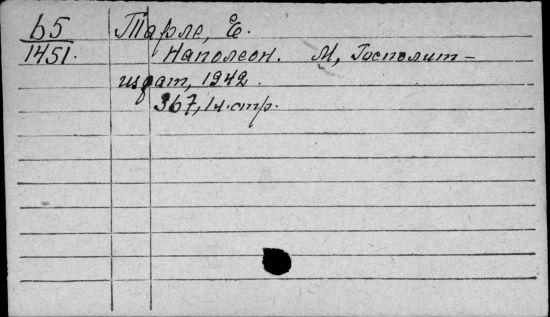 b5 Тарле, Е.
1451. Наполеон. М, Госполит-
издат, 1942.
367, 1 л. стр.